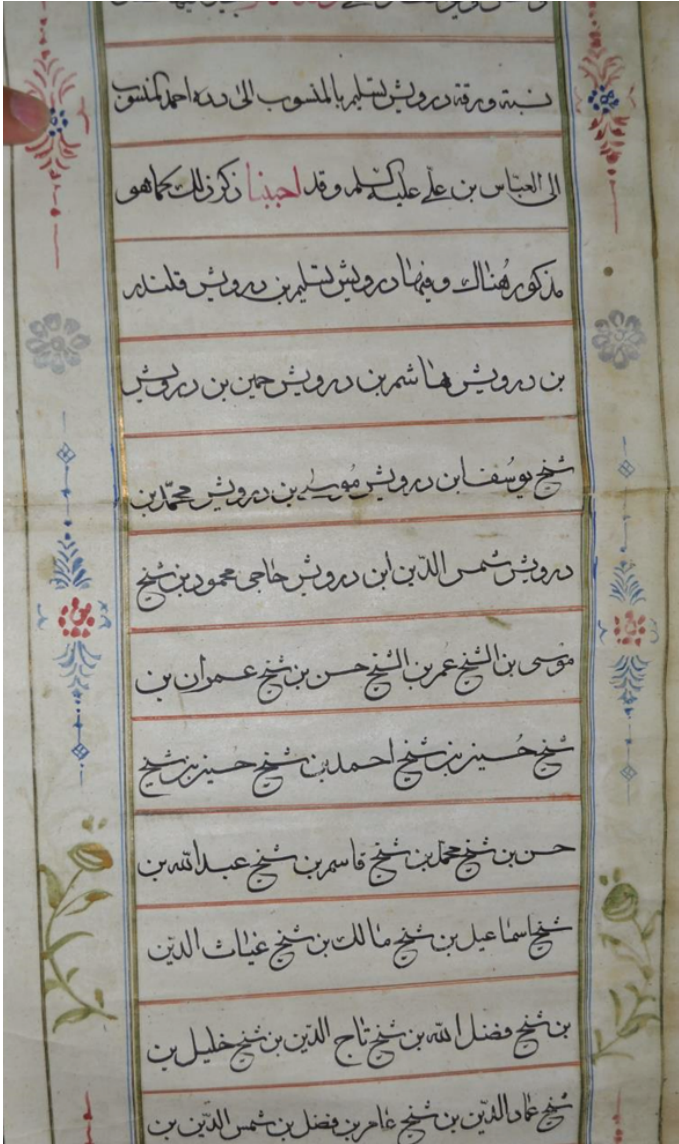 نسبة ورقة درويش تسليم بابا المنسوب الى دده احمد المنسوب
الى العباس بن علي عليه السلام وقد احببنا ذكر ذلك كما هو
مذكور هُناك وفيها درويش تسليم بن درويش قلندر
بن درويش هاشم بن درويش حسين بن درويش
شيخ يوسُف ابن درويش مُوسى بن درويش محمّد بن
درويش شمس الدّين ابن درويش حاجي محمود بن شيخ
موسى بن الشيخ عمر بن الشيخ حسن بن شيخ عمران بن
شيخ حُسين بن شيخ احمد بن شيخ حسين بن شيخ
حسن بن شيخ محمد بن شيخ قاسم بن شيخ عبدالله بن
شيخ اسماعيل بن شيخ مالك بن شيخ غياث الدين
بن شيخ فضل الله بن شيخ تاج الدّين بن شيخ خليل بن
شيخ عماد الدّين بن شيخ عامر بن فضل بن شمس الدّين بن